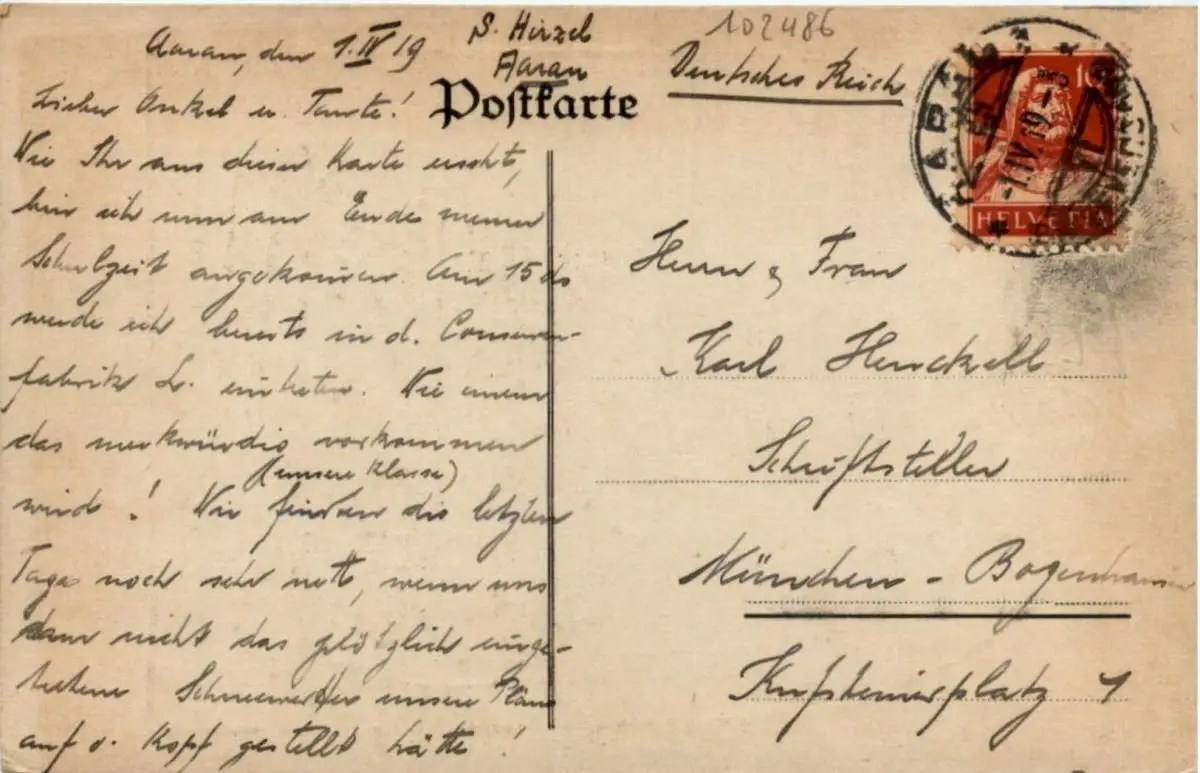 Aarau, den 1.IV 19
S. Hirzel
Aarau
102486
Postkarte
Deutsches Reich
Lieber Onkel u. Tante!
Wie Ihr aus dieser Karte erseht,
bin ich nun am Ende meiner
Schulzeit angekommen. Am 15 ds
werde ich bereits in d. Conserven-
fabrik L. eintreten. Wie einem
das merkwürdig vorkommen
wird! Wir (unsere Klasse) fänden die letzten
Tage noch sehr nett, wenn uns
dann nicht das plötzlich einge-
tretene Schneewetter unsere Pläne
auf d. Kopf gestellt hätte!
AARAU
-1.IV.19-
10
HELVETIA
Herrn & Frau
Karl Henckell
Schriftsteller
München - Bogenhausen
Kufsteinerplatz 1